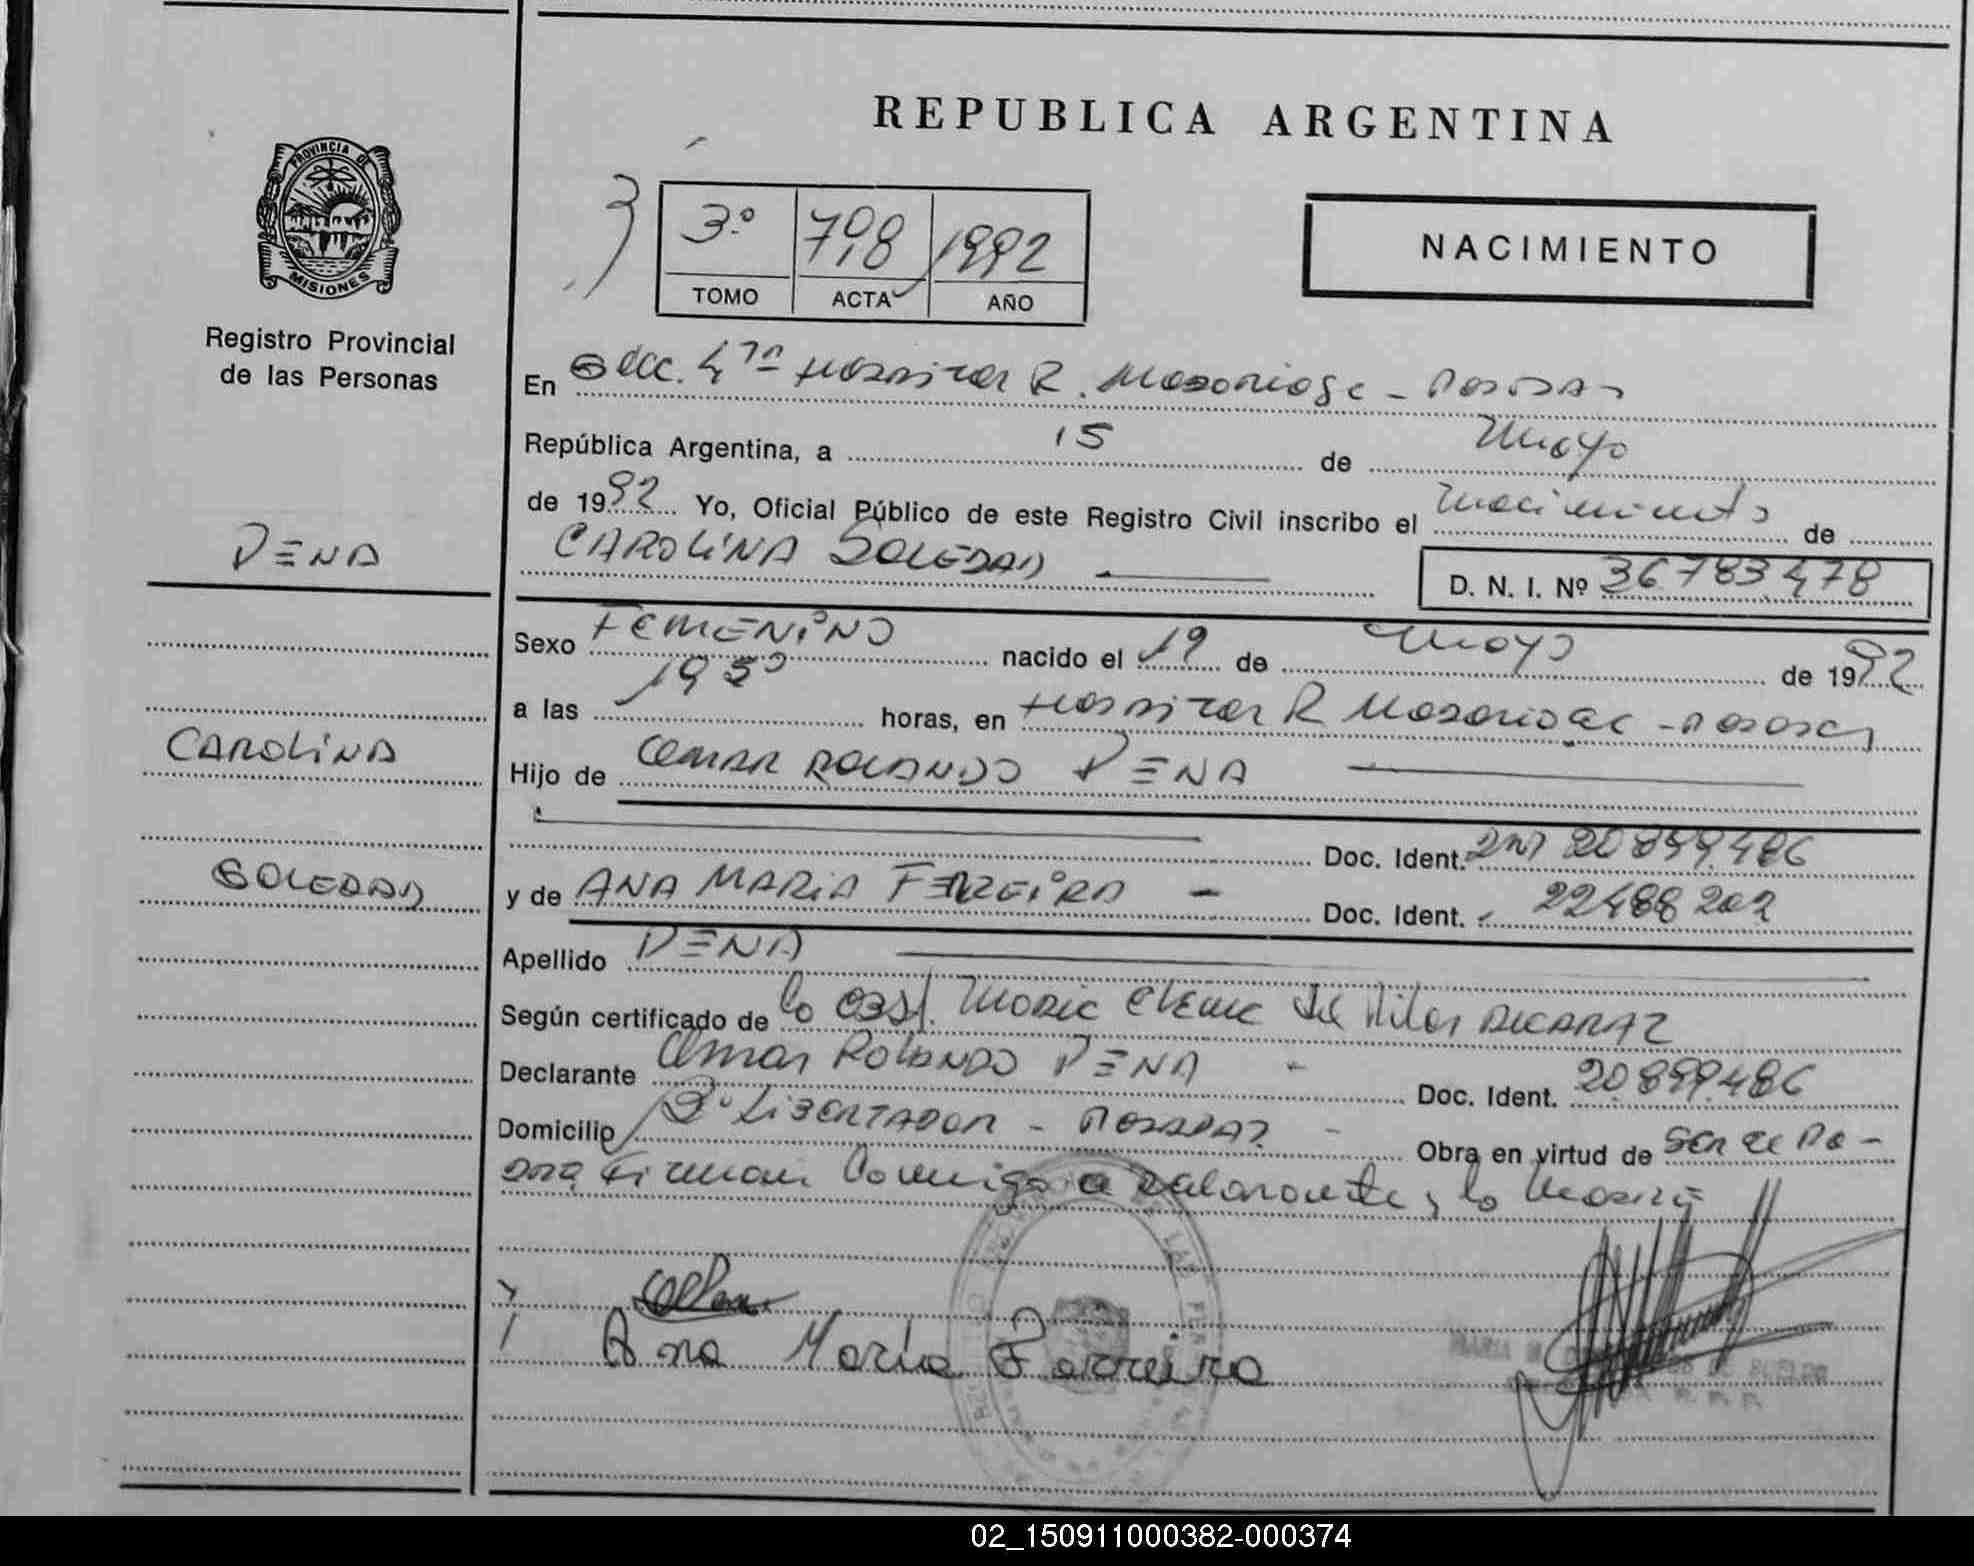 REPUBLICA ARGENTINA
PROVINCIA DE
MISIONES
Registro Provincial
de las Personas
3
3º 798 1992
TOMO ACTA AÑO
NACIMIENTO
En Secc. 4ta Hospital R. Madariaga - Posadas
República Argentina, a 15 de Mayo
de 1992 Yo, Oficial Público de este Registro Civil inscribo el nacimiento de
CAROLINA SOLEDAD
D. N. I. Nº 36.783.478
PENA
Sexo FEMENINO nacido el 12 de Mayo de 1992
a las 19 30 horas, en Hospital R Madariaga - Posadas
CAROLINA
Hijo de OMAR ROLANDO PENA
Doc. Ident. DNI 20.899.486
SOLEDAD
y de ANA MARIA FERREIRA - Doc. Ident. 22488202
Apellido PENA
Según certificado de la Obst. Maria Elena del Pilar ALCARAZ
Declarante Omar ROLANDO PENA - Doc. Ident. 20.899.486
Domicilio Bº LIBERTADOR - POSADAS - Obra en virtud de Ser el Pa-
dre Firman Conmigo el declarante y la Madre
Ana Maria Ferreira
02_150911000382-000374